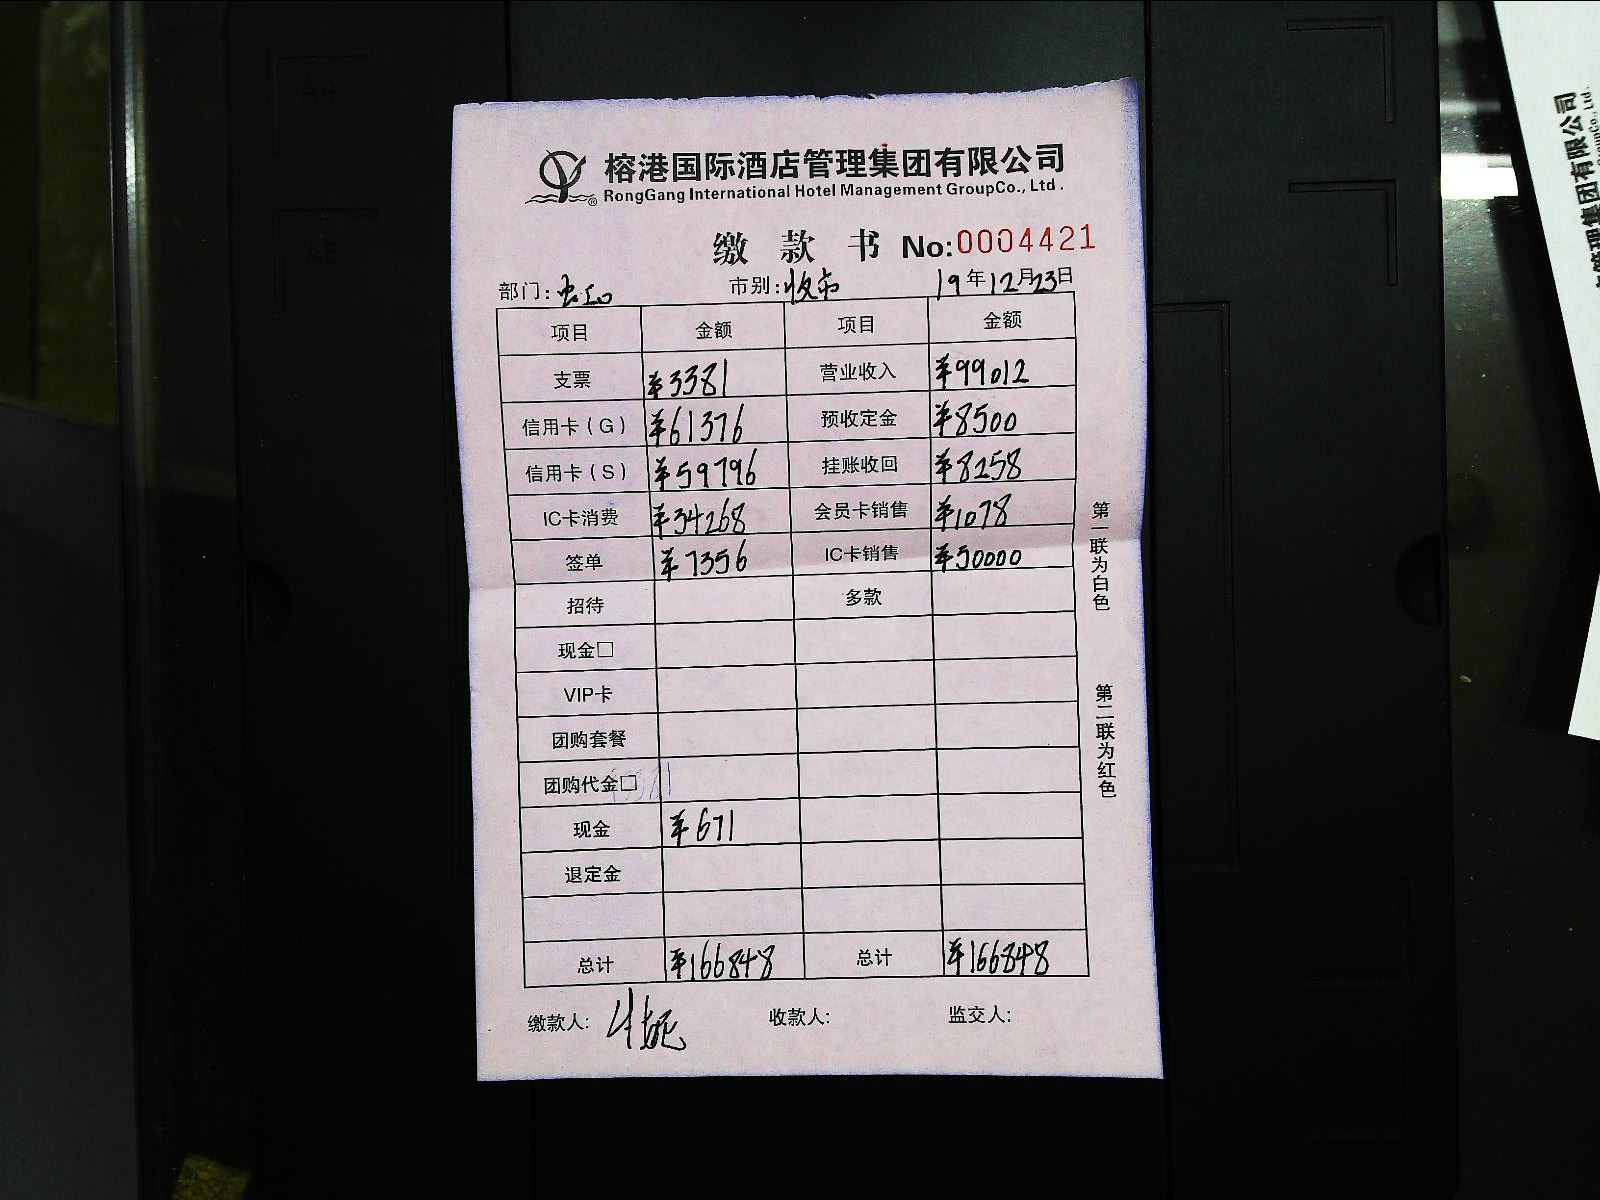 榕港国际酒店管理集团有限公司
RongGang International Hotel Management GroupCo., Ltd.
®
缴款书 No:0004421
部门: 虹口 市别: 收市 19年12月23日
项目 金额 项目 金额
支票 ¥3381 营业收入 ¥99012
信用卡(G) ¥61376 预收定金 ¥8500
信用卡(S) ¥59796 挂账收回 ¥8258
IC卡消费 ¥34268 会员卡销售 ¥1078
签单 ¥7356 IC卡销售 ¥50000
招待 多款
现金□
VIP卡
团购套餐
团购代金□
现金 ¥671
退定金
总计 ¥166848 总计 ¥166848
缴款人: 收款人: 监交人:
第一联为白色
第二联为红色
A4
A5
管理集团有限公司
GroupCo., Ltd.